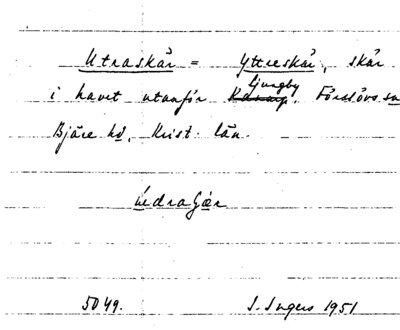 Utraskär = Yttreskär, skär
ljungby
i havet utanför Förslövs sn
Bjäre hd, Krist. län.
5049. I. Ingers 1951